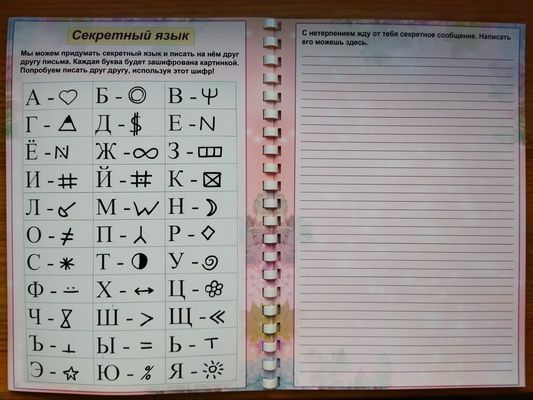 Секретный язык
Мы можем придумать секретный язык и писать на нём друг
другу письма. Каждая буква будет зашифрована картинкой.
Попробуем писать друг другу, используя этот шифр!
А - Б - В -
Г - Д - Е -
Ё - Ж - З -
И - Й - К -
Л - М - Н -
О - П - Р -
С - Т - У -
Ф - Х - Ц -
Ч - Ш - Щ -
Ъ - Ы - Ь -
Э - Ю - Я -
С нетерпением жду от тебя секретное сообщение. Написать
его можешь здесь.